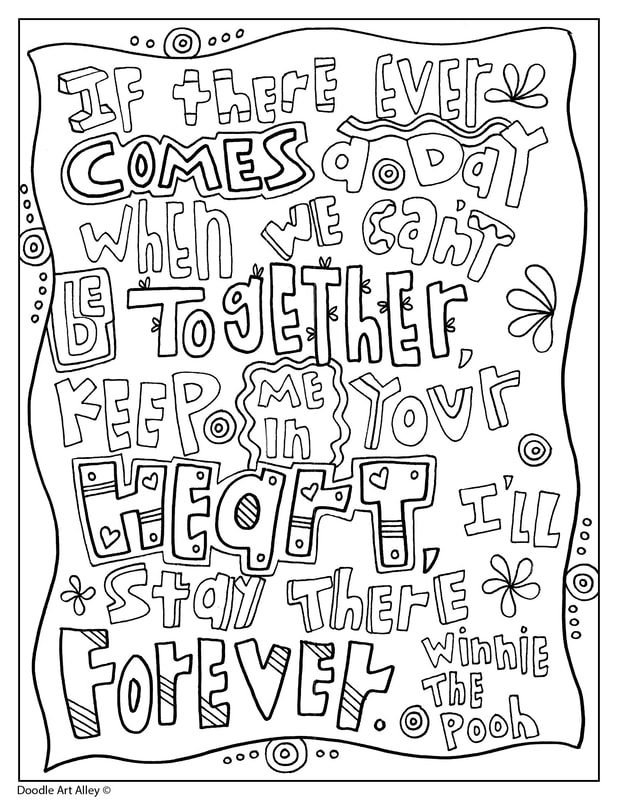 If there EVEr
COMES a Day
WHEN WE Can't
BE TogETHEr,
KEEP ME In YoUr
HEarT, I'LL
STay THErE
ForEVEr.
WinniE
THE
Pooh
Doodle Art Alley ©